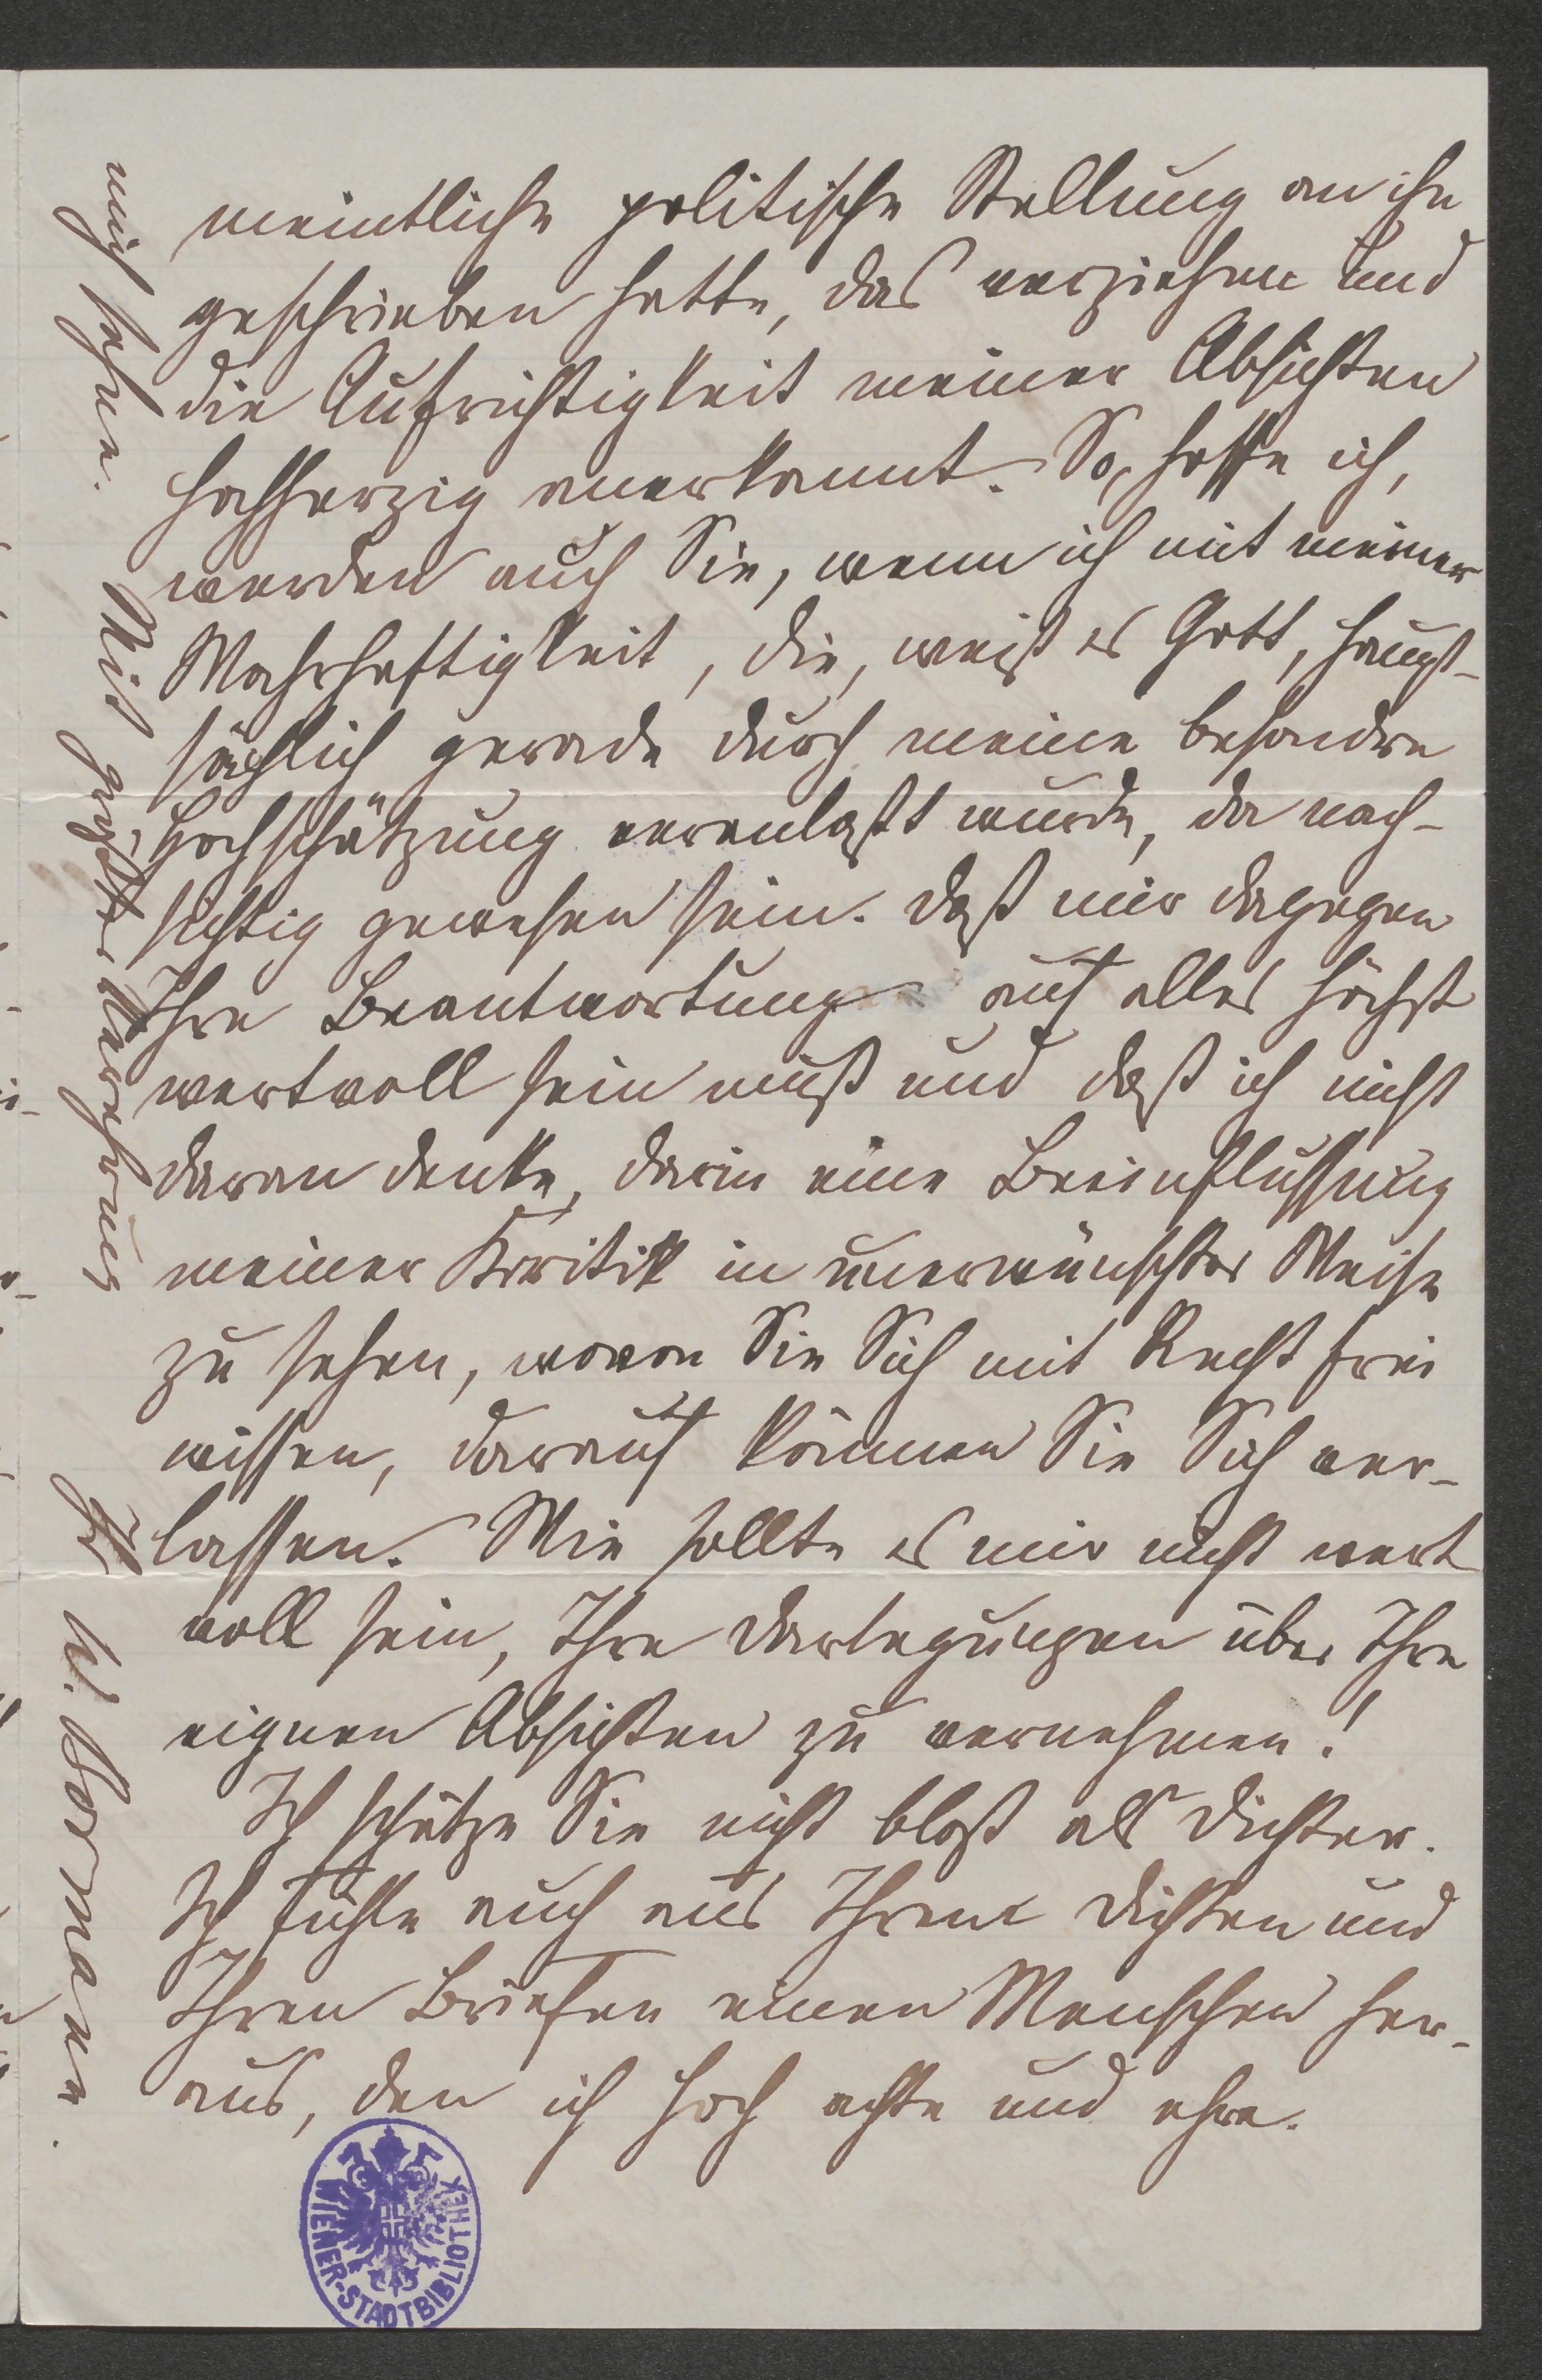 meintliche politische Stellung an ihn
geschrieben hatte, das verziehen und
die Aufrichtigkeit meiner Absichten
hochherzig anerkannt. So, hoffe ich,
werden auch Sie, wenn ich mit meiner
Wahrhaftigkeit, die, weiß es Gott, haupt-
sächlich gerade durch meine besondre
Hochschätzung veranlaßt wurde, da nach-
sichtig gewesen sein. Daß mir dagegen
Ihre Beantwortung auf alles höchst
wertvoll sein muß und daß ich nicht
daran denke, darin eine Beeinflussung
meiner Kritik in unerwünschter Weise
zu sehen, wovon Sie Sich mit Recht frei
wissen, darauf können Sie Sich ver-
lassen. Wie sollte es mir nicht wert
voll sein, Ihre Darlegungen über Ihre
eignen Absichten zu vernehmen!
Ich schätze Sie nicht bloß als Dichter.
Ich fühle auch aus Ihrem Dichten und
Ihren Briefen einen Menschen her-
aus, den ich hoch achte und ehre.
Mit größter Verehrung
Ihr W. Bormann.
WIENER-STADTBIBLIOTHEK